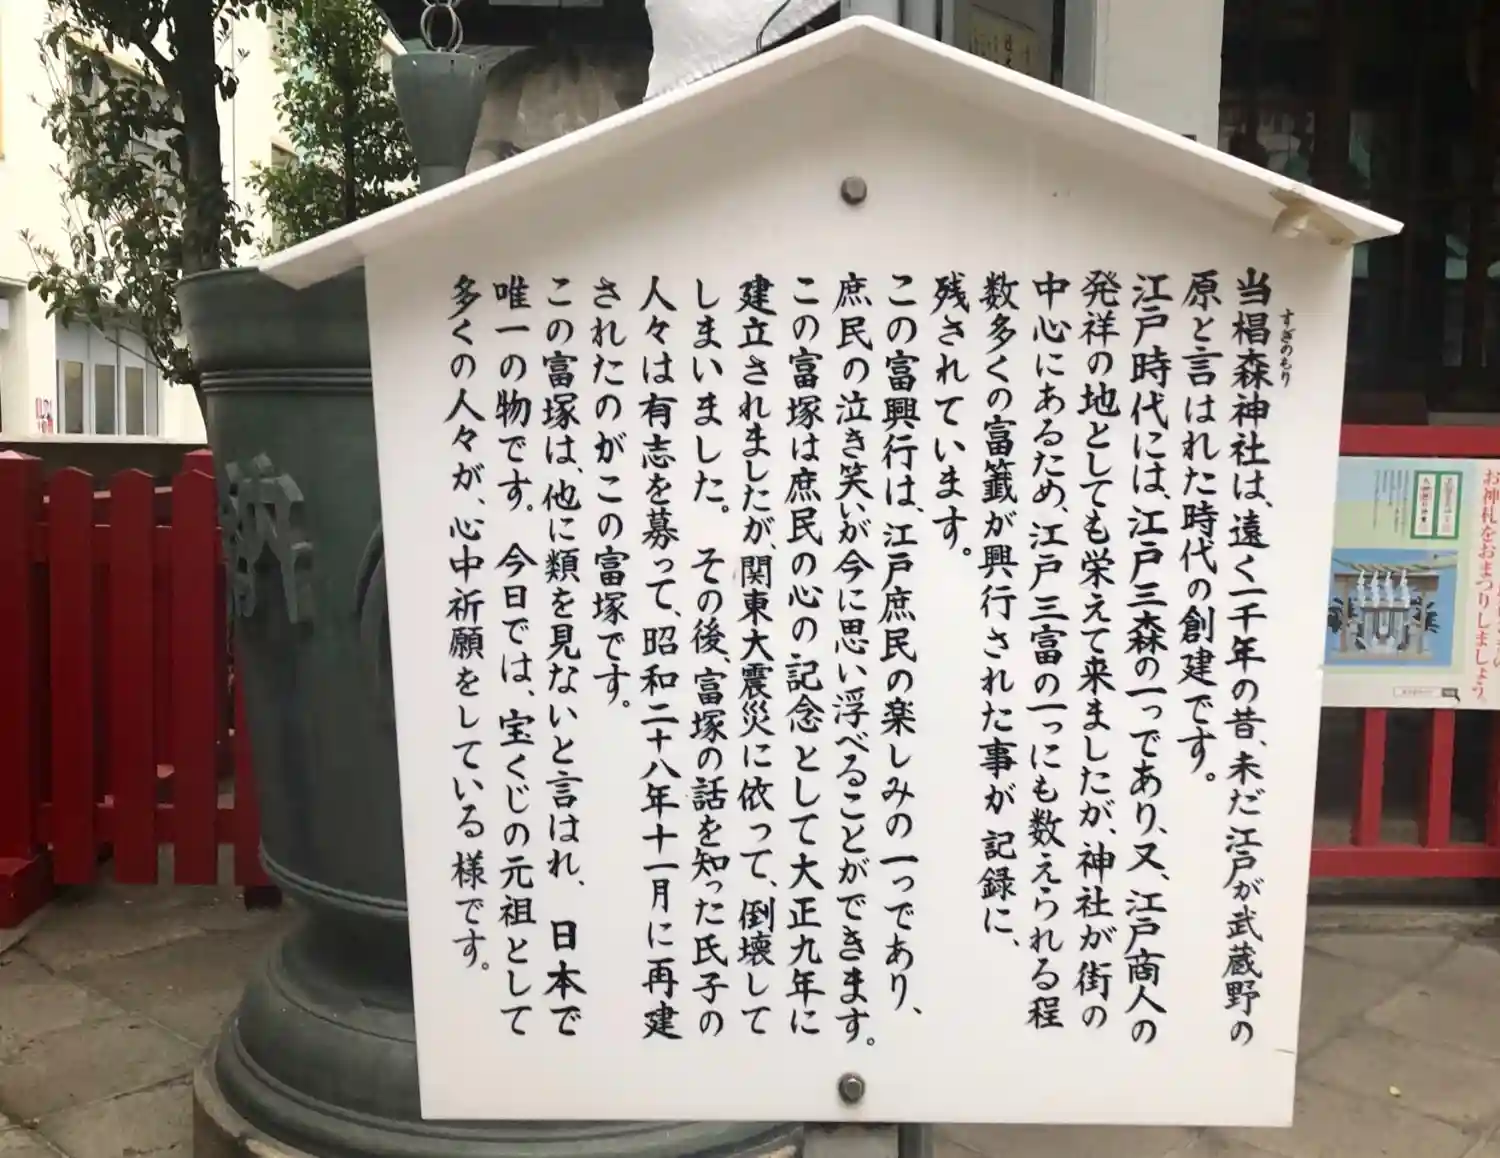 当椙森神社は、遠く一千年の昔、未だ江戸が武蔵野の
すぎのもり
原と言はれた時代の創建です。
江戸時代には、江戸三森の一っであり、又、江戸商人の
発祥の地としても栄えて来ましたが、神社が街の
中心にあるため、江戸三富の一っにも数えられる程
数多くの富籤が興行された事が記録に、
残されています。
この富興行は、江戸庶民の楽しみの一っであり、
庶民の泣き笑いが今に思い浮べることができます。
この富塚は庶民の心の記念として大正九年に
建立されましたが、関東大震災に依って、倒壊して
しまいました。 その後、富塚の話を知った氏子の
人々は有志を募って、昭和二十八年十一月に再建
されたのがこの富塚です。
この富塚は、他に類を見ないと言はれ、日本で
唯一の物です。今日では、宝くじの元祖として
多くの人々が、心中祈願をしている様です。
お神札をおまつりしましょう。